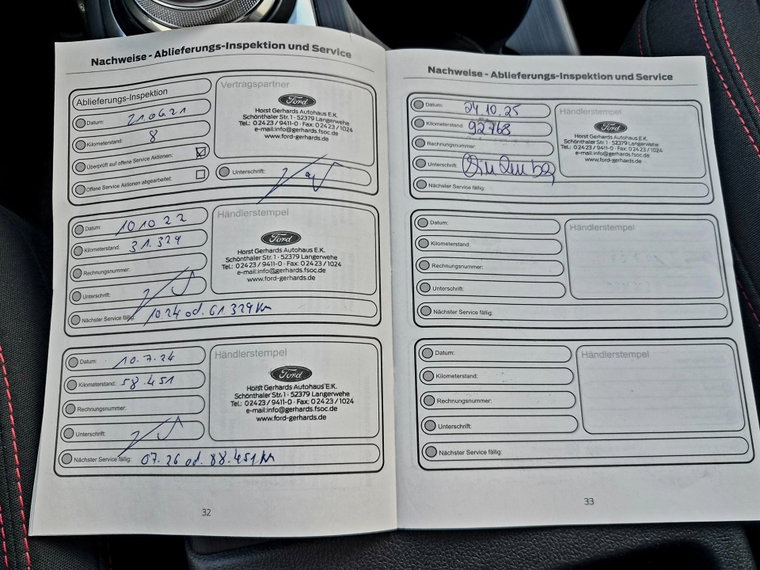 Nachweise - Ablieferungs-Inspektion und Service
Ablieferungs-Inspektion
Datum: 21.06.21
Kilometerstand: 8
Überprüft auf offene Service Aktionen:
Offene Service Aktionen abgearbeitet:
Vertragspartner
Ford
Horst Gerhards Autohaus E.K.
Schönthaler Str. 1 · 52379 Langerwehe
Tel.: 0 24 23 / 9411-0 · Fax: 0 24 23 / 1024
e-mail:info@gerhards.fsoc.de
www.ford-gerhards.de
Unterschrift:
Datum: 10.10.22
Kilometerstand: 31.329
Rechnungsnummer:
Unterschrift:
Nächster Service fällig: 10.24 od. 61.329 Km
Händlerstempel
Ford
Horst Gerhards Autohaus E.K.
Schönthaler Str. 1 · 52379 Langerwehe
Tel.: 0 24 23 / 9411-0 · Fax: 0 24 23 / 1024
e-mail:info@gerhards.fsoc.de
www.ford-gerhards.de
Datum: 10.7.24
Kilometerstand: 58.451
Rechnungsnummer:
Unterschrift:
Nächster Service fällig: 07.26 od. 88.451 Km
Händlerstempel
Ford
Horst Gerhards Autohaus E.K.
Schönthaler Str. 1 · 52379 Langerwehe
Tel.: 0 24 23 / 9411-0 · Fax: 0 24 23 / 1024
e-mail:info@gerhards.fsoc.de
www.ford-gerhards.de
32
Nachweise - Ablieferungs-Inspektion und Service
Datum: 24.10.25
Kilometerstand: 92768
Rechnungsnummer:
Unterschrift:
Nächster Service fällig:
Händlerstempel
Ford
Horst Gerhards Autohaus E.K.
Schönthaler Str. 1 · 52379 Langerwehe
Tel.: 0 24 23 / 9411-0 · Fax: 0 24 23 / 1024
e-mail:info@gerhards.fsoc.de
www.ford-gerhards.de
Datum:
Kilometerstand:
Rechnungsnummer:
Unterschrift:
Nächster Service fällig:
Händlerstempel
Datum:
Kilometerstand:
Rechnungsnummer:
Unterschrift:
Nächster Service fällig:
Händlerstempel
33